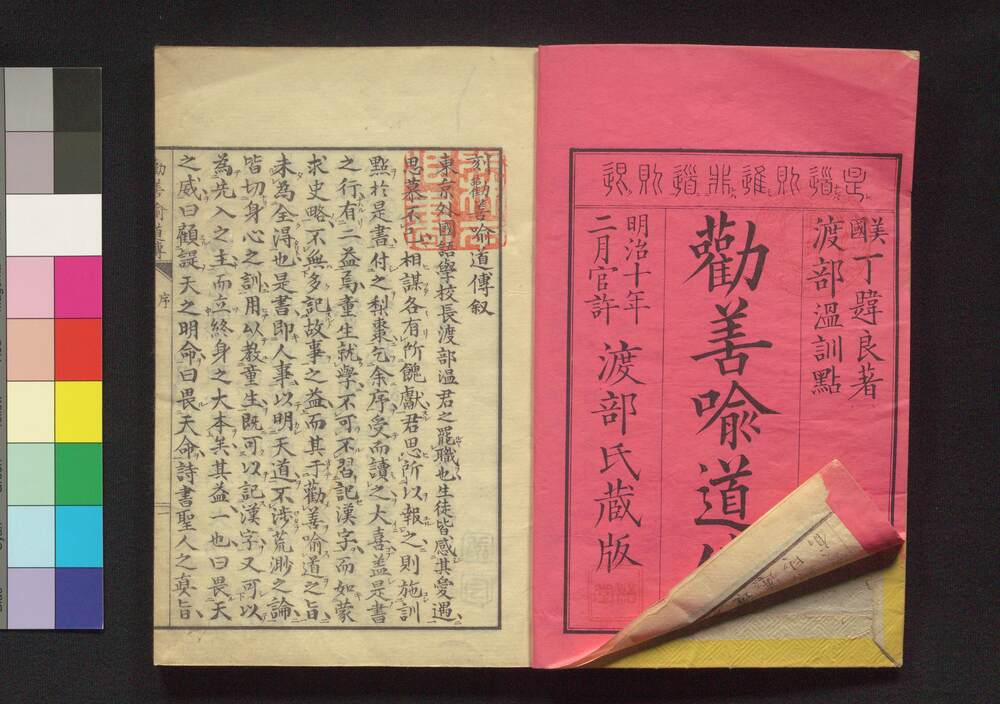 是道則進非道則退
美國 丁韙良著
渡部温訓點
勸善喩道
明治十年
二月官許
渡部氏蔵版
刻勸善喩道傳叙
東京外國語學校長渡部温君之罷職也生徒皆感其愛遇
思慕不 相謀各有所餽獻君思所以報之則施訓
點於是書付之梨棗乞余序受而讀之大喜蓋是書
之行有二益焉童生就學不可不習記漢字而如蒙
求史略不無多記故事之益而其于勸善喩道之旨
未為全得也是書即人事以明天道不渉荒渺之論
皆切身心之訓用以教童生既可以記漢字又可以
為先入之主而立終身之大本矣其益一也曰畏天
之威曰顧諟天之明命曰畏天命詩書聖人之真旨
勸善喩道傳 序